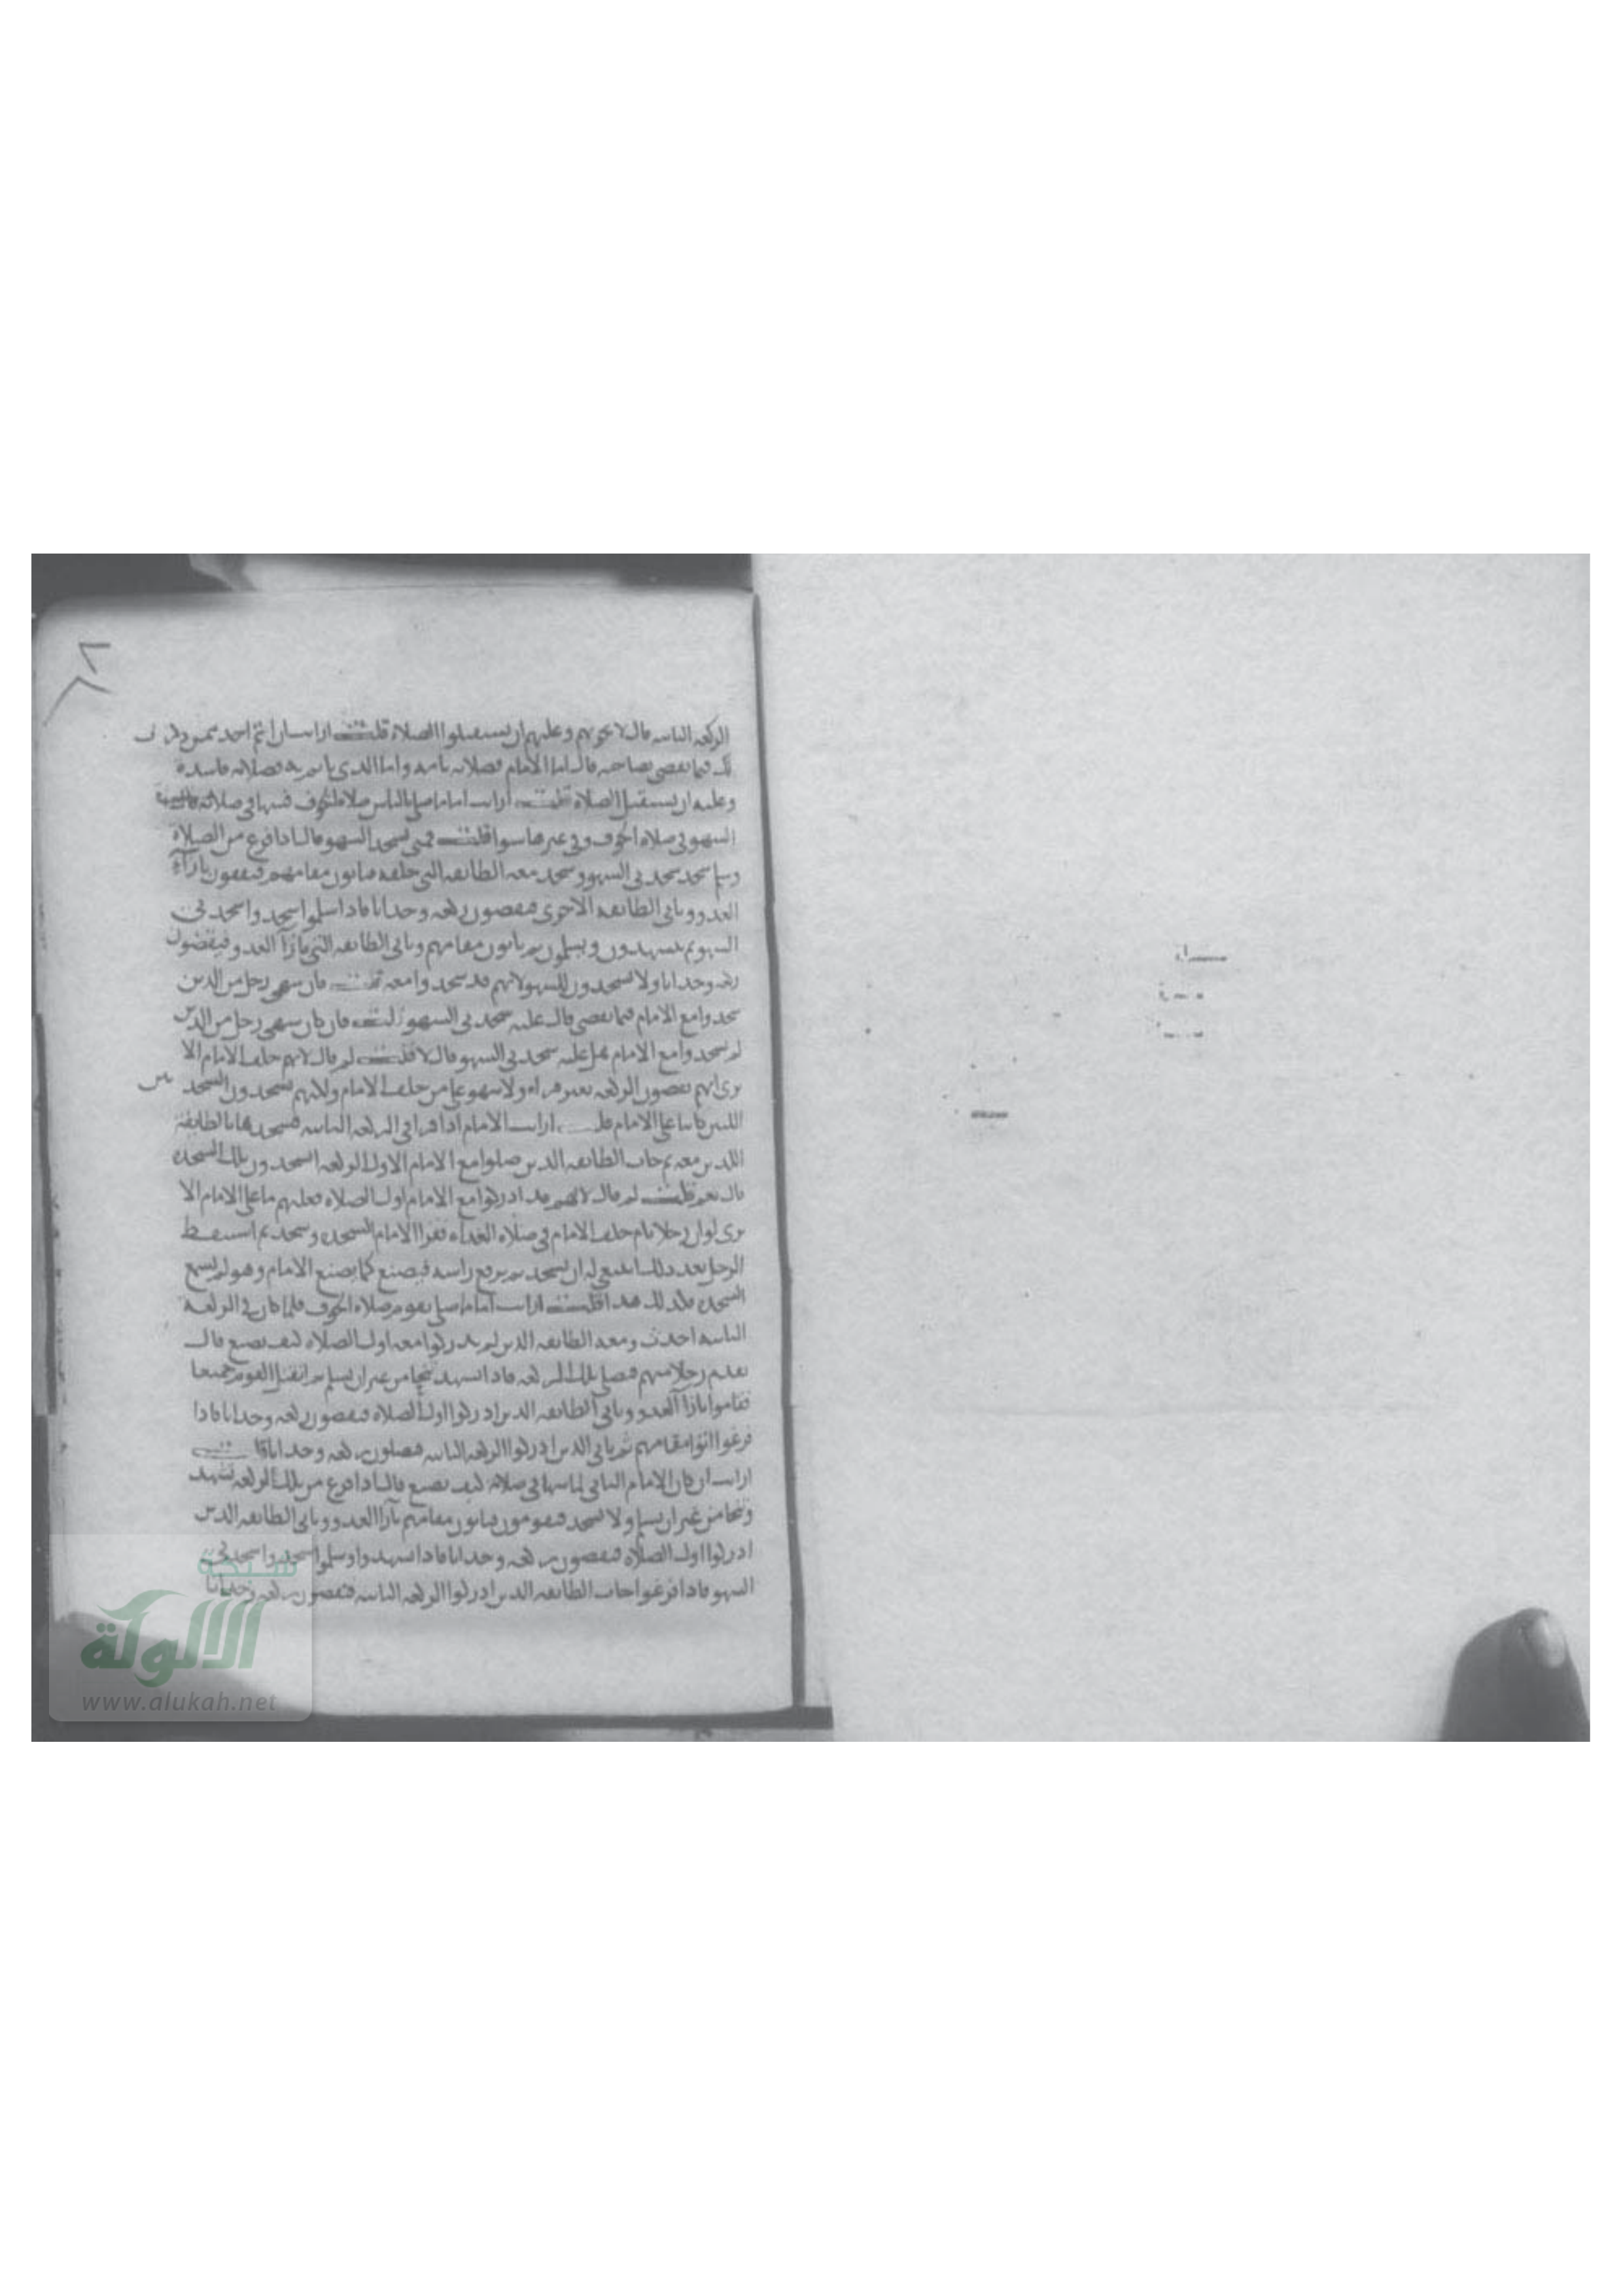 الركعة الثانية قال لا يجزيهم وعليهم ان يستقبلوا الصلاة قلت ارايت ان ائتم احد ممن
فيما يقضي بصاحبه قال اما الامام فصلاته تامة واما الذي ياتم به فصلاته فاسدة
وعليه ان يستقبل الصلاة قلت ارايت اماما صلى بالناس صلاة الخوف فسها في صلاته
السهو في صلاة الخوف وفي غيرها سوا قلت فمتى يسجد السهو قال اذا فرغ من الصلاة
وسلم سجد سجدتي السهو وسجد معه الطائفة التي خلفه فياتون مقامهم فيقفون بازآء
العدو وياتي الطائفة الاخرى فيقضون ركعة وحدانا فاذا سلموا سجدوا سجدتي
السهو ثم يتشهدون ويسلمون ثم ياتون مقامهم وياتي الطائفة التي بازآ العدو فيقضون
ركعة وحدانا ولا يسجدون للسهو لانهم قد سجدوا معه قلت فان سهى رجل من الذين
سجدوا مع الامام فيما يقضي قال عليه سجدتي السهو قلت فان كان سهى رجل من الذين
لم يسجدوا مع الامام هل عليه سجدتي السهو قال لا قلت لم قال لانهم خلف الامام الا
ترى انهم يقضون الركعة بغير قراه ولا سهو على من خلف الامام ولانهم يسجدون السجد تين
اللتين كانتا على الامام قلت ارايت الامام اذا قرا في الركعة الثانية فسجدها بالطائفة
الذين معه ثم جات الطائفة الذين صلوا مع الامام الاول الركعة ايسجدون تلك السجدة
قال نعم قلت لم قال لانهم قد ادركوا مع الامام اول الصلاة فعليهم ما على الامام الا
ترى لو ان رجلا نام خلف الامام في صلاة الغداة فقرا الامام السجدة وسجد ثم استيقظ
الرجل بعد ذلك انبغى له ان يسجد ثم يرفع راسه فيصنع كما يصنع الامام وهو لم يسمع
السجدة فكذلك هذا قلت ارايت اماما صلى بقوم صلاة الخوف فلما كان في الركعة
الثانية احدث ومعه الطائفة الذين لم يدركوا معه اول الصلاة كيف يصنع قال
يقدم رجلا منهم فصلى تلك الركعة فاذا تشهد تنحا من غير ان يسلم ثم انفتل القوم جميعا
فقاموا بازآ العدو وياتي الطائفة الذين ادركوا اول الصلاة فيقضون ركعة وحدانا فاذا
فرغوا اتوا مقامهم ثم ياتي الذين ادركوا الركعة الثانية فيصلون ركعة وحدانا قلت
ارايت ان كان الامام الثاني لما سها في صلاته كيف يصنع قال اذا فرغ من تلك الركعة تشهد
وتنحا من غير ان يسلم ولا يسجد فيقومون فياتون مقامهم بازآ العدو وياتي الطائفة الذين
ادركوا اول الصلاة فيقضون ركعة وحدانا فاذا تشهدوا وسلموا سجدوا سجدتي
السهو فاذا فرغوا جات الطائفة الذين ادركوا الركعة الثانية فيقضون ركعة وحدانا
شبكة
الألوكة
www.alukah.net